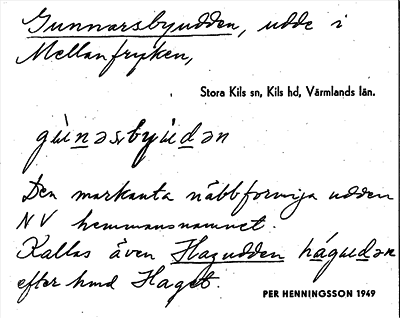 Gunnarsbyudden, udde i
Mellanfryken,
Stora Kils sn, Kils hd, Värmlands län.
gùnəsbyùdən
Den markanta näbbformiga udden
NV hemmansnamnet.
Kallas även Hagudden hágudən
efter hmd Haget.
PER HENNINGSSON 1949